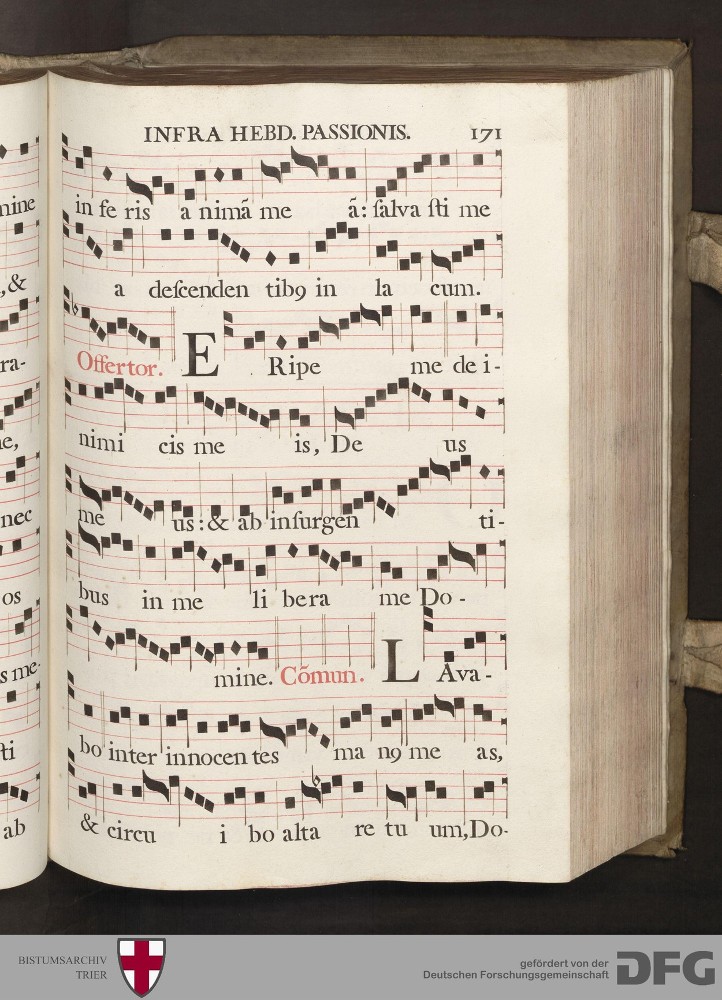 INFRA HEBD. PASSIONIS. 171
in fe ris a nimã me ã: ſalva ſti me
a deſcenden tib9 in la cum.
Offertor. E Ripe me de i-
nimi cis me is, De us
me us: & ab inſurgen ti-
bus in me li bera me Do-
mine. Cõmun. L Ava-
bo inter innocen tes ma n9 me as,
& circu i bo alta re tu um, Do-
mine
, &
ra-
ne,
nec
os
s me-
ſti
ab
BISTUMSARCHIV
TRIER
gefördert von der
Deutschen Forschungsgemeinschaft
DFG